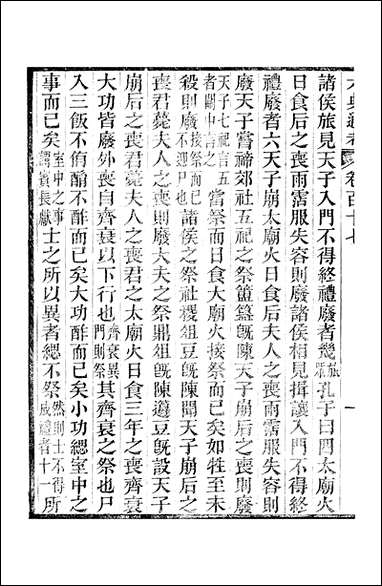 六典通考 卷百十七 一
諸侯旅見天子入門不得終禮廢者幾旅眾孔子曰四太廟火
日食后之喪雨霑服失容則廢諸侯相見揖讓入門不得終
禮廢者六天子崩太廟火日食后夫人之喪雨霑服失容則
廢天子嘗禘郊社五祀之祭簠簋旣陳天子崩后之喪則廢
天子七祀言五者關中言之當祭而日食太廟火接祭而已矣如牲至未
殺則廢接祭而已不迎尸也諸侯之祭社稷俎豆旣陳聞天子崩后之
喪君薨夫人之喪則廢大夫之祭鼎俎旣陳籩豆旣設天子
崩后之喪君薨夫人之喪君之太廟火日食三年之喪齊衰
大功皆廢外喪自齊衰以下行也齊衰異門則祭其齊衰之祭也尸
入三飯不侑酳不酢而已矣大功酢而已矣小功緦室中之
事而已矣室中之事謂賓長獻士之所以異者緦不祭然則士不得成禮者十一所